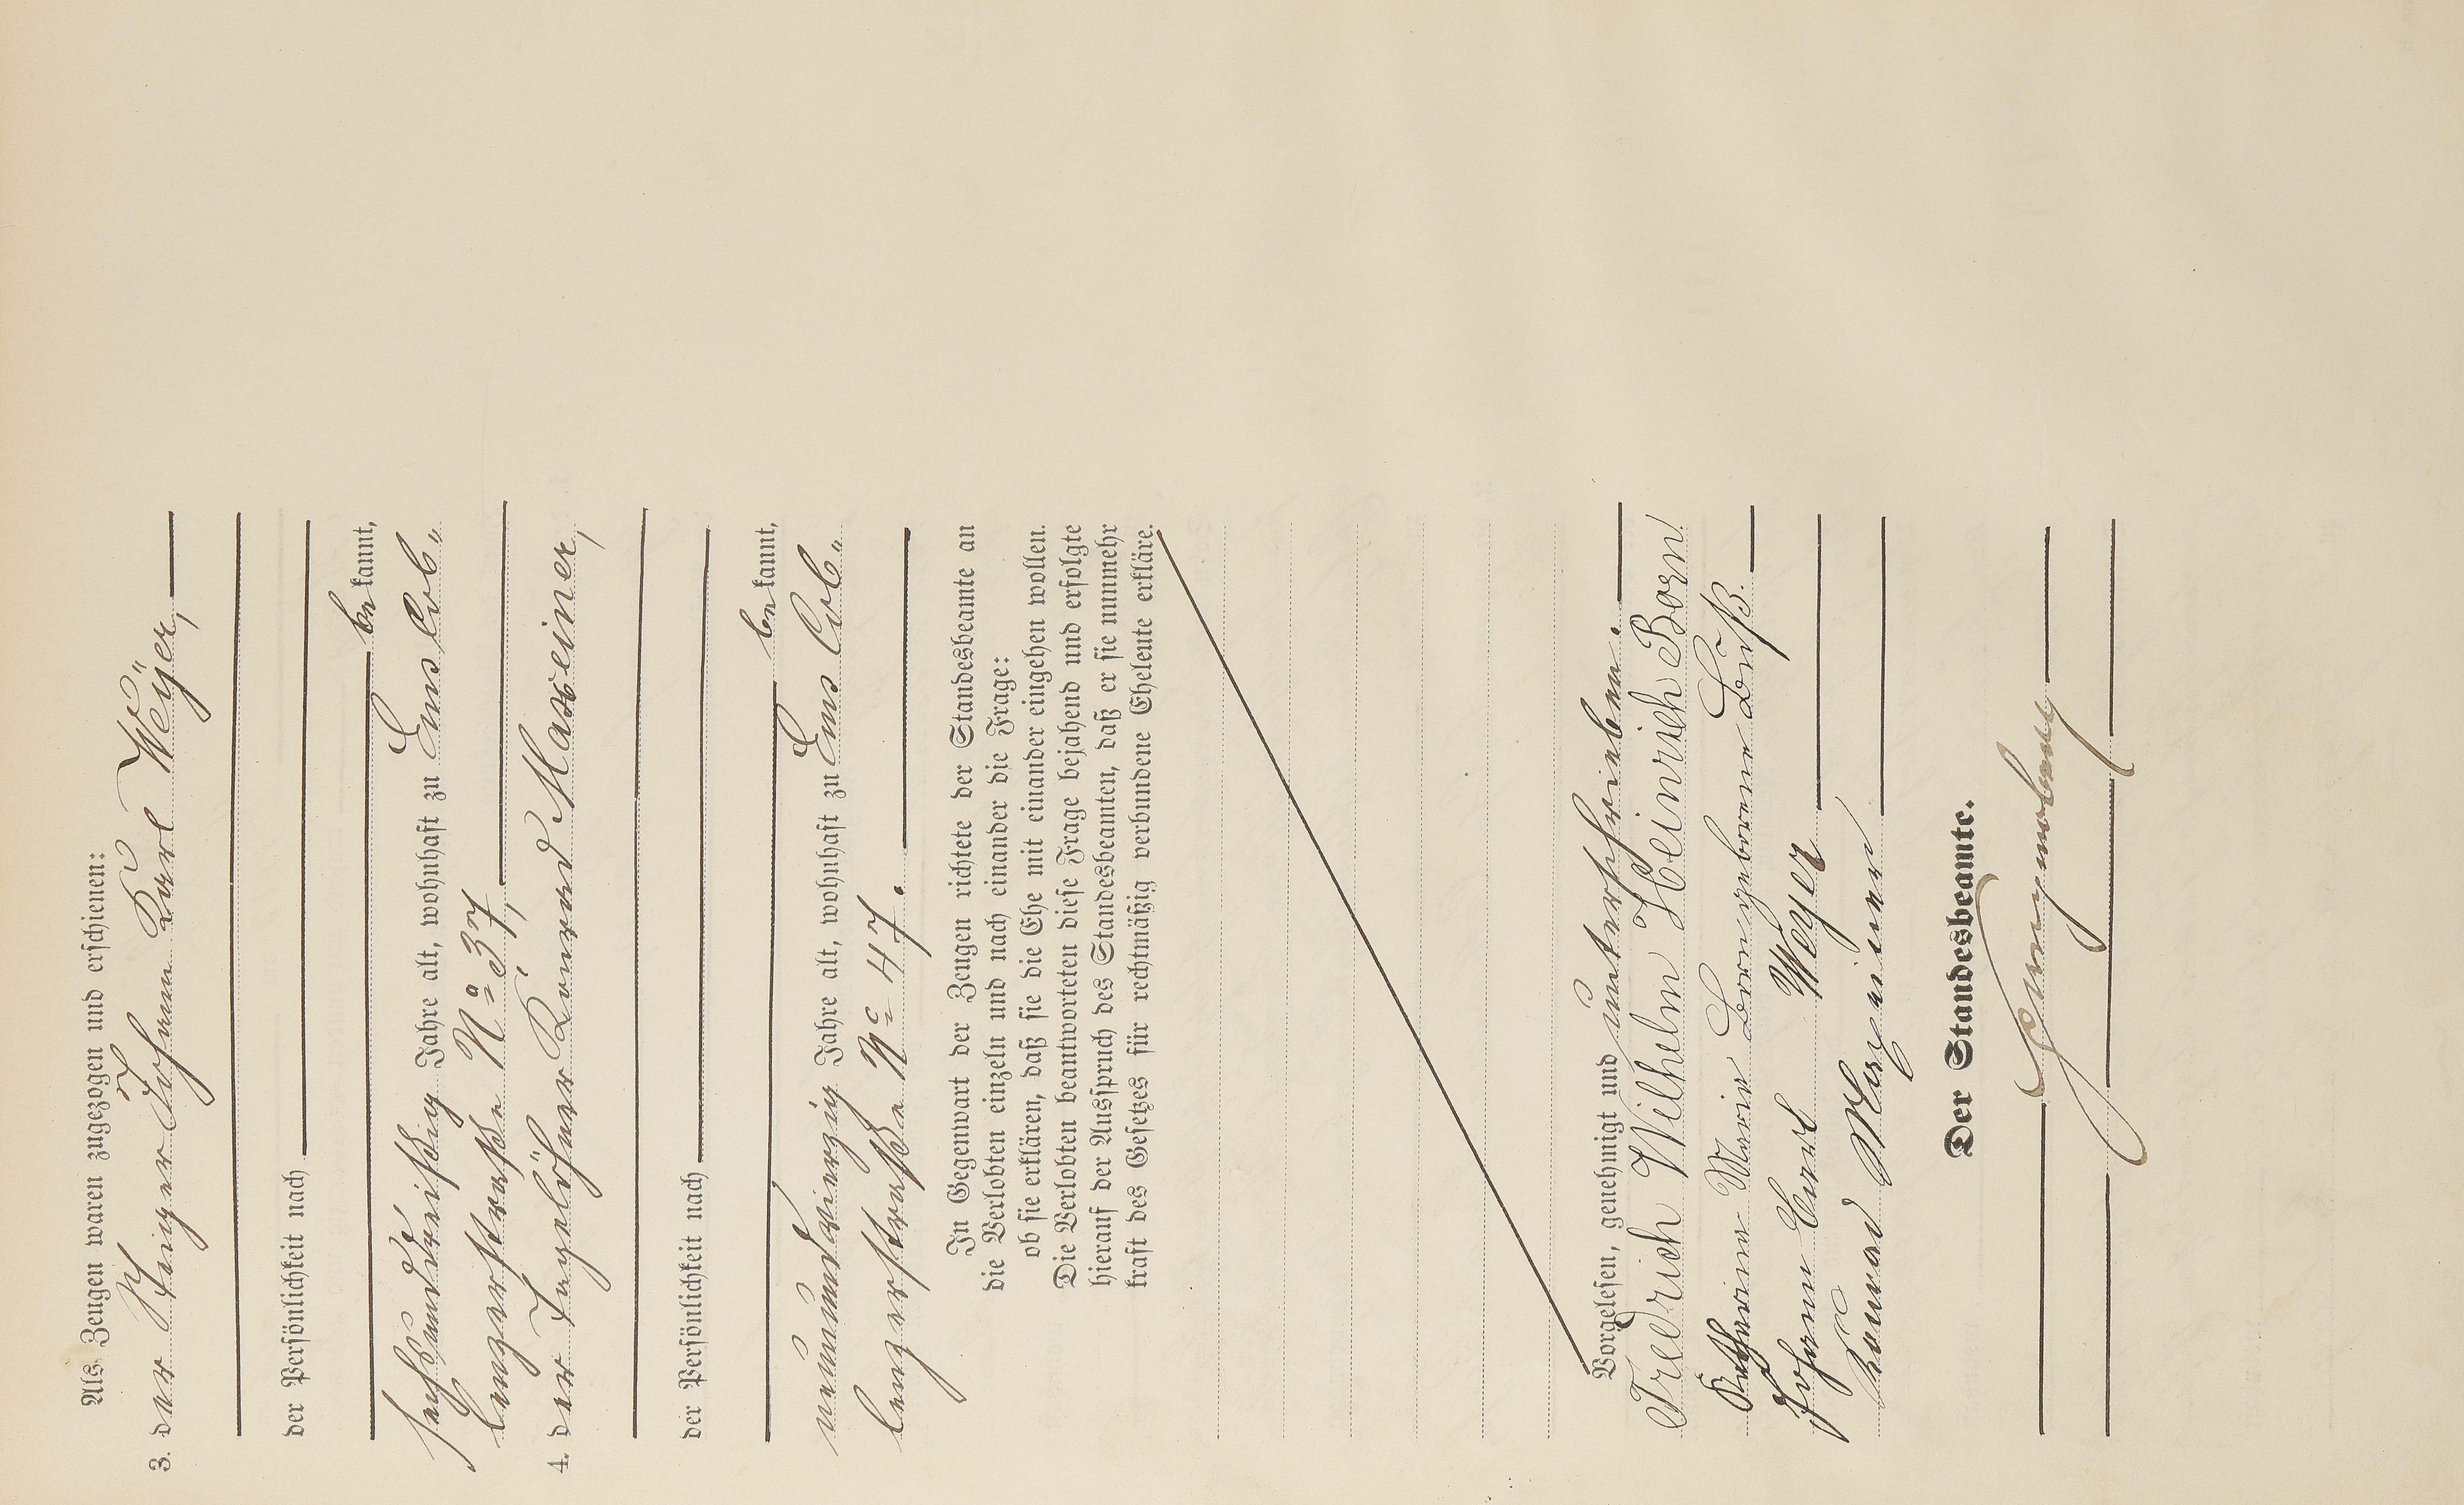 Als Zeugen waren zugezogen und erschienen:
3. der Steiger Johann Karl Weyer,
der Persönlichkeit nach
bekannt,
sechsunddreißig Jahre alt, wohnhaft zu Ems Cob„
lenzerstraße No 37,
4. der Tagelöhner Konrad Maxeiner,
der Persönlichkeit nach
bekannt,
neunundvierzig Jahre alt, wohnhaft zu Ems Cob„
lenzerstraße No 47.
In Gegenwart der Zeugen richtete der Standesbeamte an
die Verlobten einzeln und nach einander die Frage:
ob sie erklären, daß sie die Ehe mit einander eingehen wollen.
Die Verlobten beantworteten diese Frage bejahend und erfolgte
hierauf der Ausspruch des Standesbeamten, daß er sie nunmehr
kraft des Gesetzes für rechtmäßig verbundene Eheleute erkläre.
Vorgelesen, genehmigt und unterschrieben.
Friedrich Wilhelm Heinrich Born
Katharina Maria Born geborene Buß.
Johann Carl Weyer
Konrad Maxeiner
Der Standesbeamte.